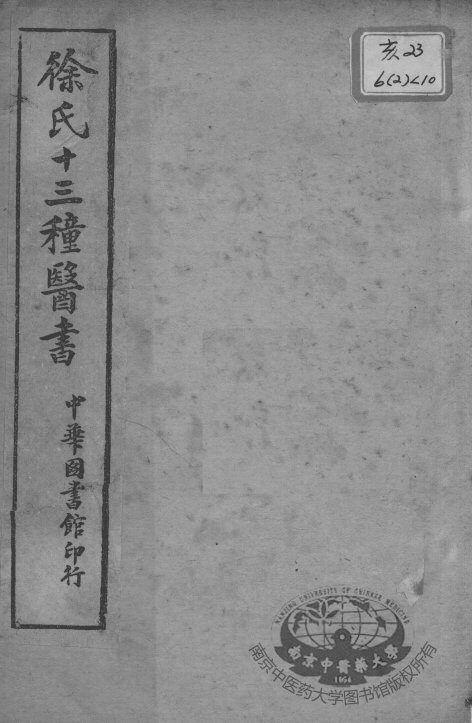 徐氏十三種醫書
中華圖書館印行
亥23
6(2)<10
NANJING UNIVERSITY OF CHINESE MEDICINE
南京中醫藥大學
1954
南京中医药大学图书馆版权所有